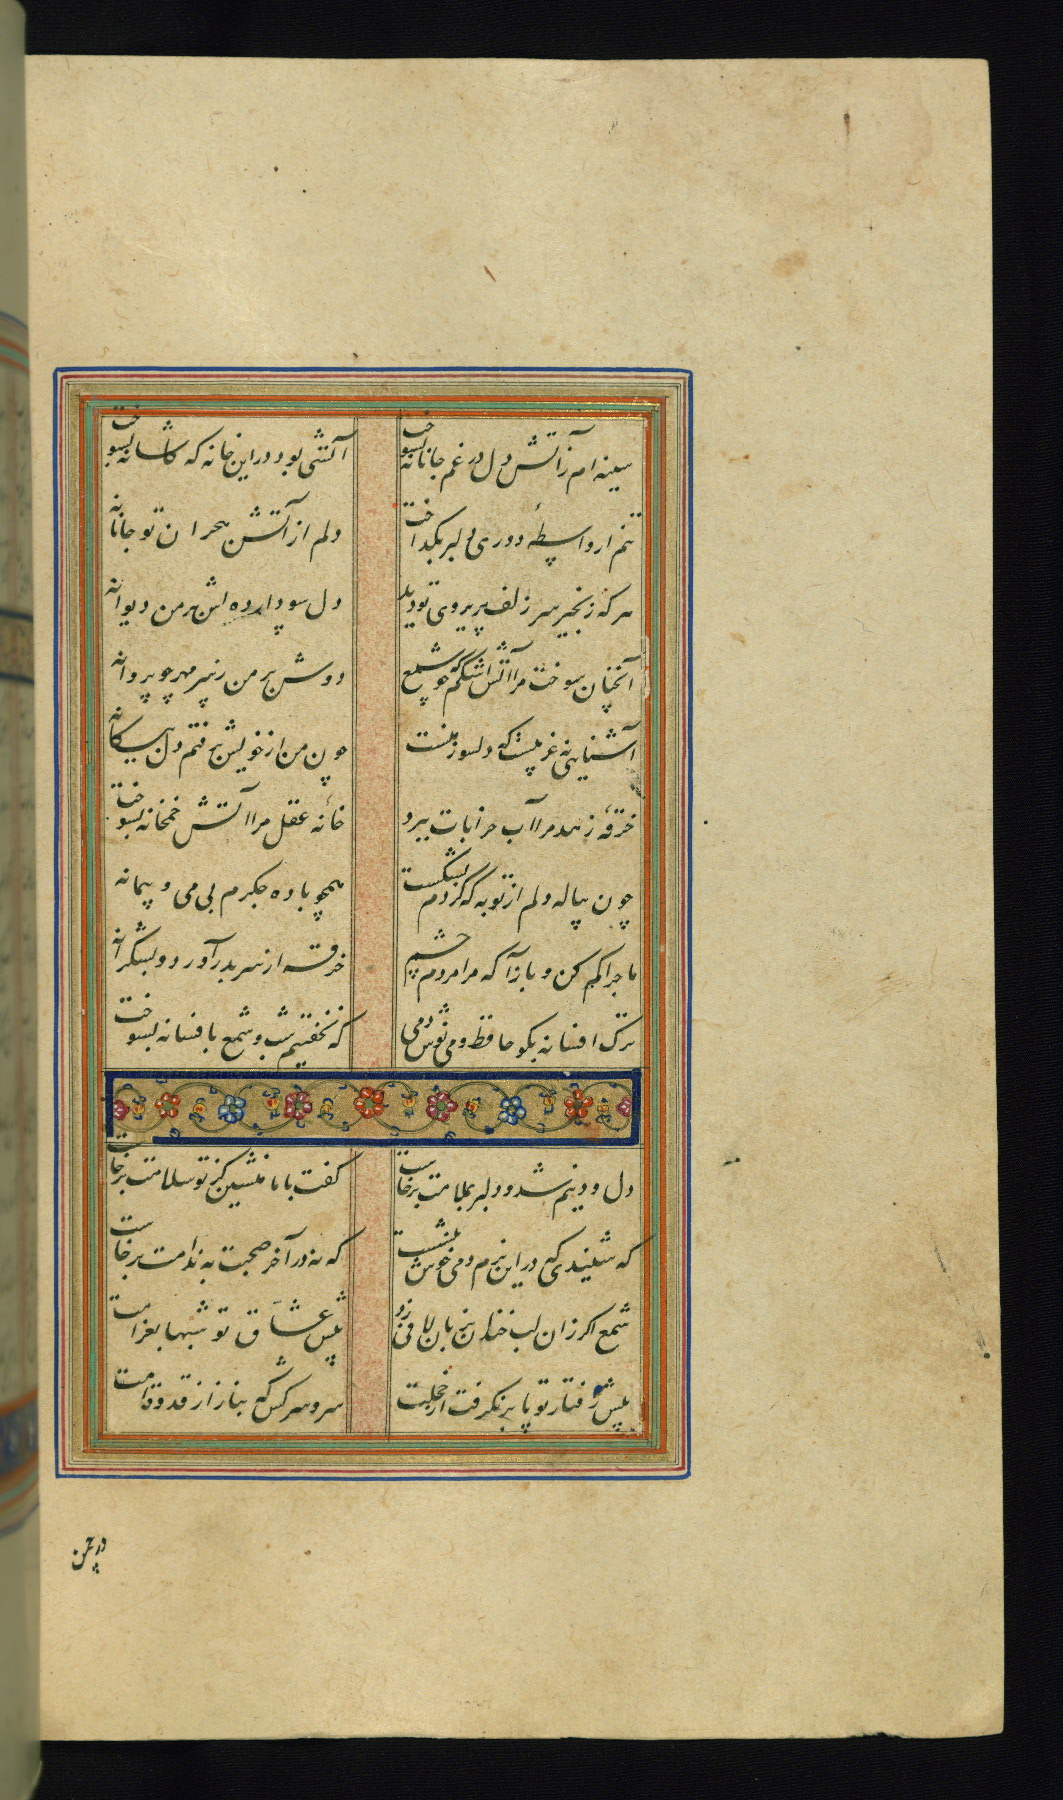 سینه ام زآتش دل در غم جانانه بسوخت آتشی بود در این خانه که کاشانه بسوخت
تنم از واسطهٔ دوری دلبر بگداخت دلم از آتش هجران تو جانانه
هر که زنجیر سر زلف پریروی تو دید دل سودازده اش بر من دیوانه
آنچنان سوخت مرا آتش اشکم که چو شمع دوش بر من ز سر مهر چو پروانه
آشنایی نه غریبست که دلسوز منست چون من از خویش برفتم دل بیگانه
خرقهٔ زهد مرا آب خرابات ببرد خانهٔ عقل مرا آتش خمخانه بسوخت
چون پیاله دلم از توبه که کردم بشکست همچو باده جگرم بی می و پیمانه
ماجرا کم کن و بازآ که مرا مردم چشم خرقه از سر بدر آورد و بشکرانه
ترک افسانه بگو حافظ و می نوش دمی که نخفتیم شب و شمع بافسانه بسوخت
دل و دینم شد و دلبر بملامت برخاست گفت با ما منشین کز تو سلامت برخاست
که شنیدی که در این بزم دمی خوش بنشست که نه در آخر صحبت به ندامت برخاست
شمع اگر زان لب خندان بزبان لافی زد پیش عشاق تو شبها بغرامت
پیش رفتار تو پا بر نگرفت از خجلت سرو سرکش که بناز از قد و قامت
در چمن